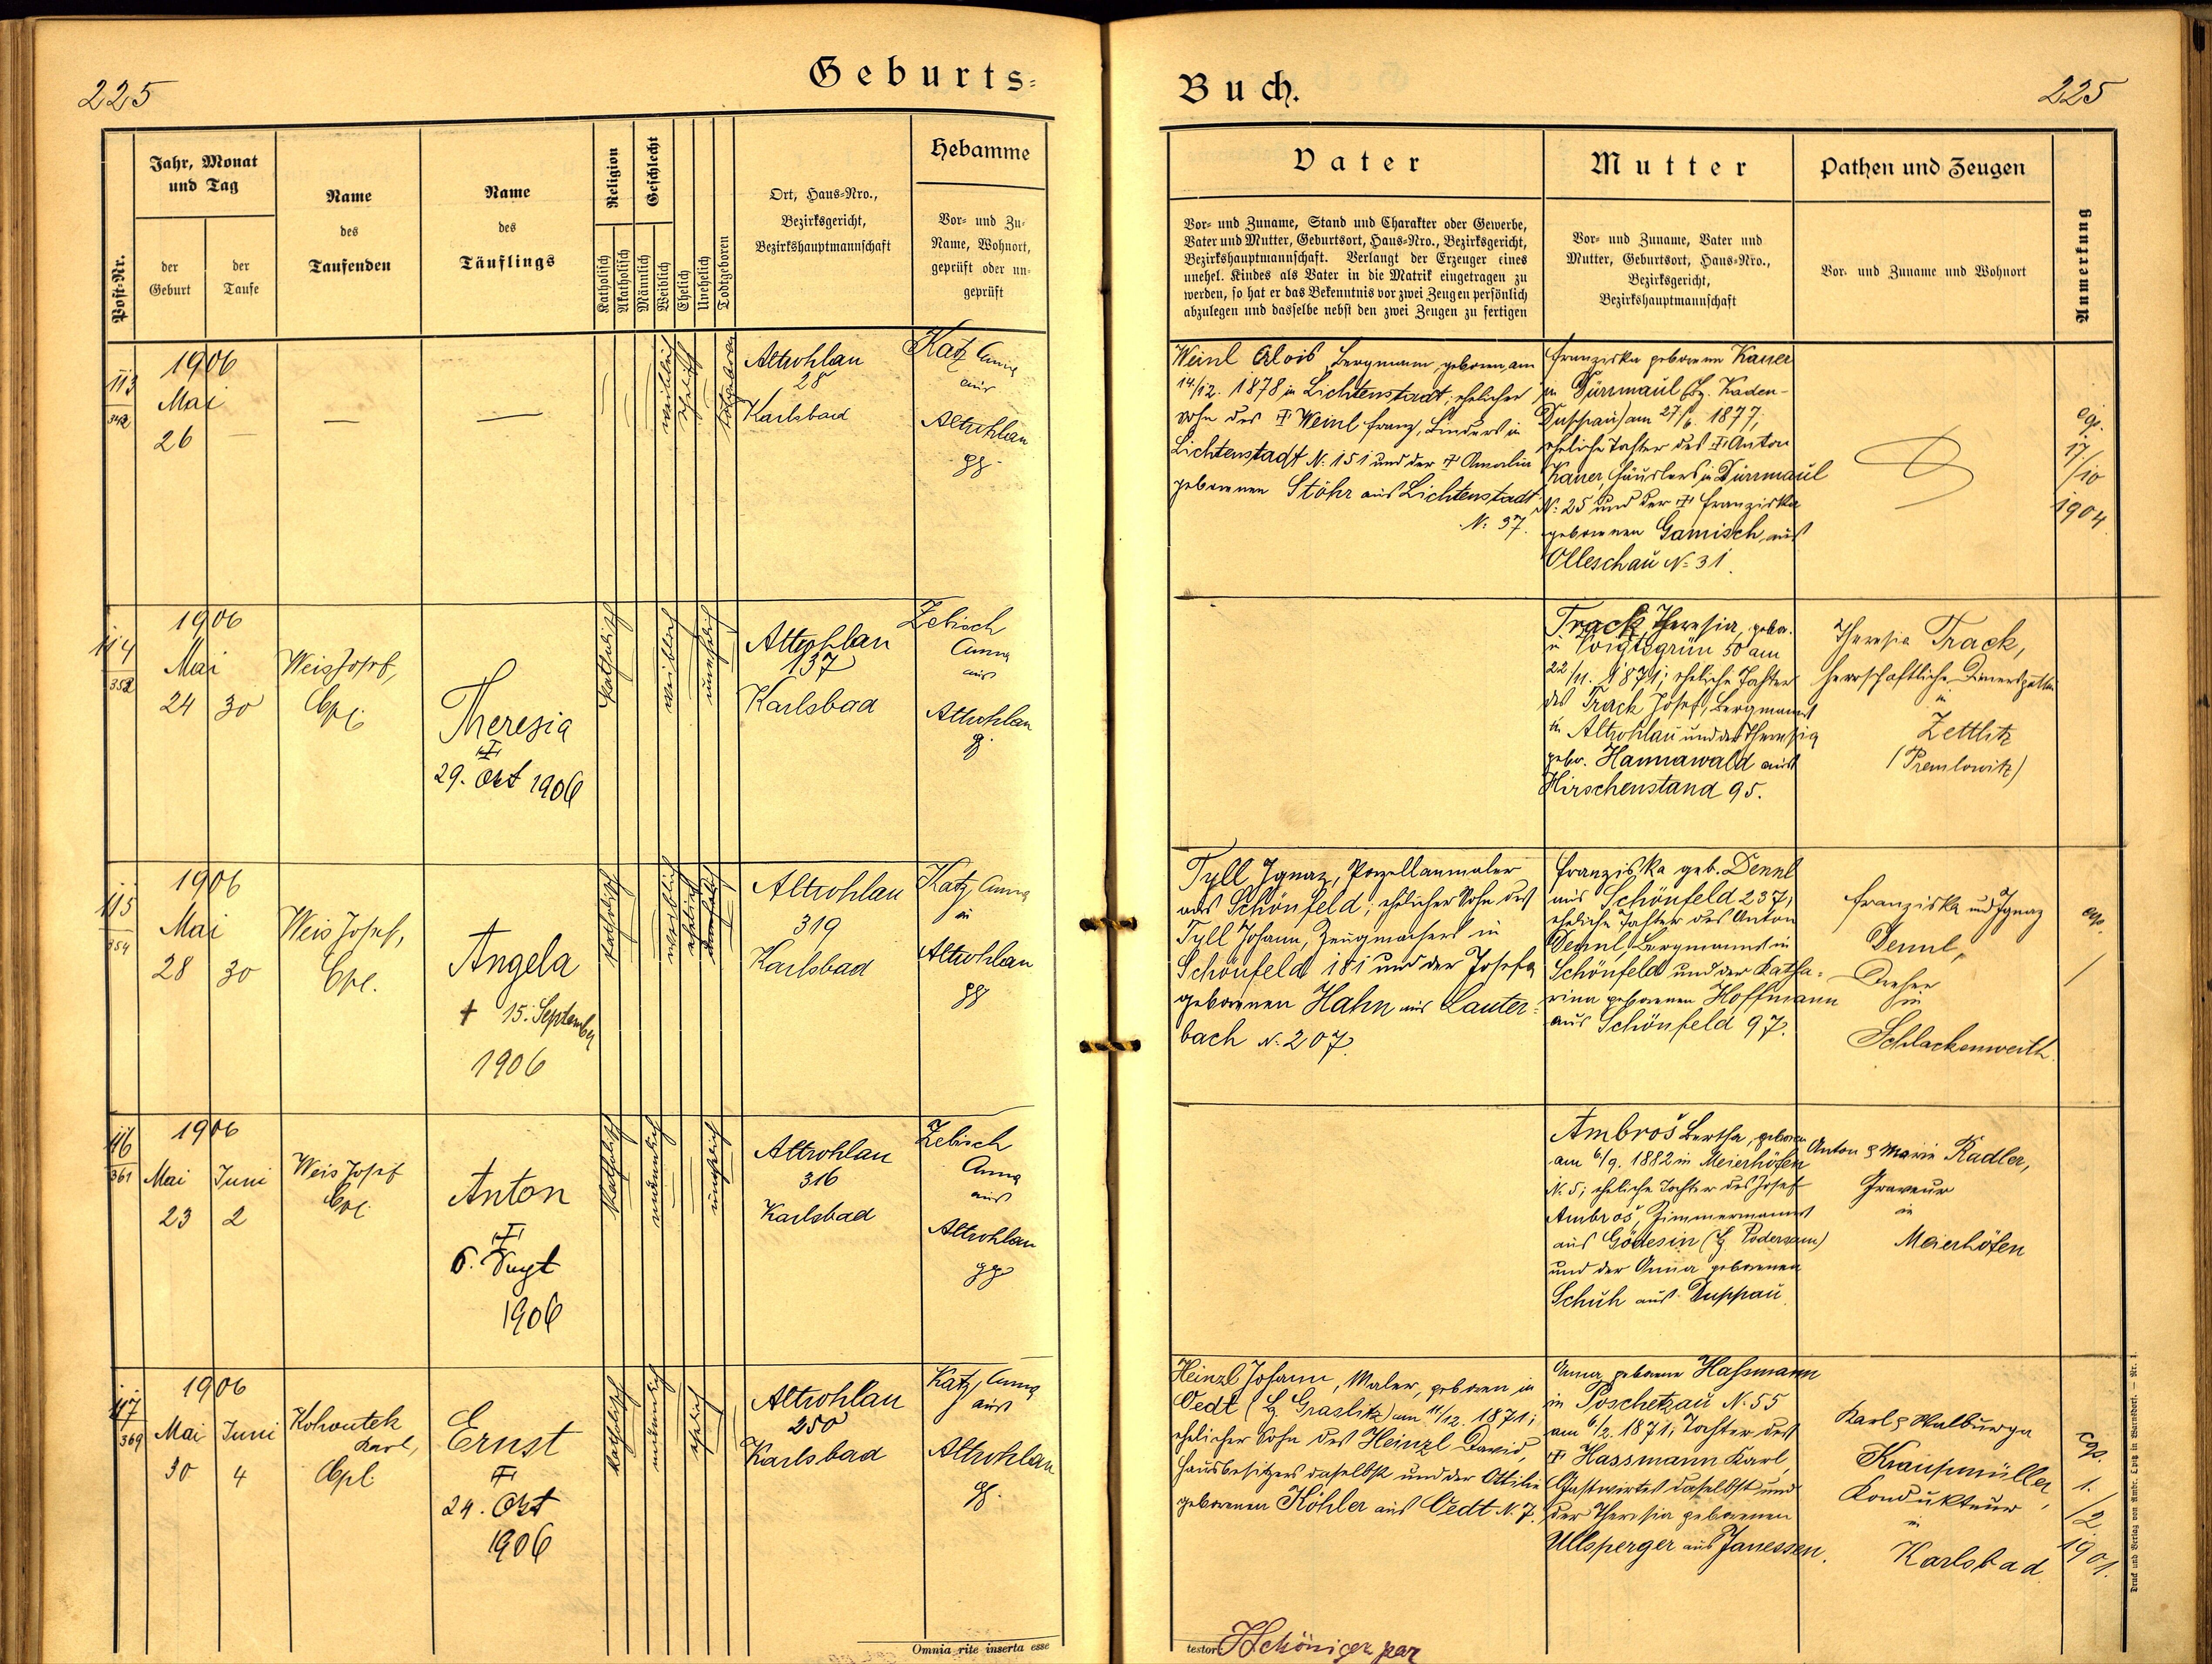 225
Geburts-
Post-Nr.
Jahr, Monat
und Tag
der
Geburt
der
Taufe
Name
des
Taufenden
Name
des
Täuflings
Religion
Katholisch
Akatholisch
Geschlecht
Männlich
Weiblich
Ehelich
Unehelich
Todtgeboren
Ort, Haus-Nro.,
Bezirksgericht,
Bezirkshauptmannschaft
Hebamme
Vor- und Zu-
Name, Wohnort,
geprüft oder un-
geprüft
113
342
1906
Mai
26
—
—
—
weiblich
ehelich
totgeboren
Altrohlau
28
Karlsbad
Katz Anna
aus
Altrohlau
gg.
114
352
1906
Mai
24
30
Weis Josef,
Cpl.
Theresia
29. Okt 1906
katholisch
weiblich
unehelich
Altrohlau
137
Karlsbad
Zebisch
Anna
aus
Altrohlau
g.
115
354
1906
Mai
28
30
Weis Josef,
Cpl.
Angela
† 15. September
1906
katholisch
weiblich
ehelich
Altrohlau
319
Karlsbad
Katz Anna
in
Altrohlau
gg
116
361
1906
Mai
Juni
23
2
Weis Josef
Cpl.
Anton
6. Sept
1906
katholisch
männlich
unehelich
Altrohlau
316
Karlsbad
Zebisch
Anna
aus
Altrohlau
gg
117
369
1906
Mai
Juni
30
4
Kohoutek
Karl,
Cpl.
Ernst
24. Okt
1906
katholisch
männlich
ehelich
Altrohlau
250
Karlsbad
Katz, Anna
aus
Altrohlau
g.
Omnia rite inserta esse
Buch.
225
Vater
Vor- und Zuname, Stand und Charakter oder Gewerbe,
Vater und Mutter, Geburtsort, Haus-Nro., Bezirksgericht,
Bezirkshauptmannschaft. Verlangt der Erzeuger eines
unehel. Kindes als Vater in die Matrik eingetragen zu
werden, so hat er das Bekenntnis vor zwei Zeugen persönlich
abzulegen und dasselbe nebst den zwei Zeugen zu fertigen
Mutter
Vor- und Zuname, Vater und
Mutter, Geburtsort, Haus-Nro.,
Bezirksgericht,
Bezirkshauptmannschaft
Pathen und Zeugen
Vor- und Zuname und Wohnort
Anmerkung
Weinl Alois, Bergmann, geboren am
14./12. 1878 in Lichtenstadt; ehelicher
Sohn des † Weinl Franz, Binders in
Lichtenstadt N: 151 und der † Amalia
geborenen Stöhr aus Lichtenstadt
N: 37.
Franziska geborene Kauer
in Dürrmaul (Bz. Kaden-
Duppau) am 27/6. 1877;
eheliche Tochter des † Anton
Kauer, Häuslers in Dürrmaul
N: 25 und der † Franziska
geborenen Gamisch, aus
Olleschau N: 31.
17/10
1904
Track Theresia, gebor.
in Voigtsgrün 50 am
22/11. 1871; eheliche Tochter
des Track Josef, Bergmanns
in Altrohlau und der Theresia
gebor. Hannawald aus
Hirschenstand 95.
Theresia Track,
herrschaftliche Dienersgattin
in
Zettlitz
(Premlowitz)
Tyll Ignaz, Porzellanmaler
aus Schönfeld; ehelicher Sohn des
Tyll Johann, Zeugmachers in
Schönfeld 181 und der Josefa
geborenen Hahn aus Lauter-
bach N: 207.
Franziska geb. Dennl
aus Schönfeld 237;
eheliche Tochter des Anton
Dennl, Bergmanns in
Schönfeld und der Katha-
rina geborenen Hoffmann
aus Schönfeld 97.
Franziska und Ignaz
Dennl,
Dreher
in
Schlackenwerth.
Ambroš Bertha, geboren
am 6/9. 1882 in Meierhöfen
N: 5; eheliche Tochter des Josef
Ambroš, Zimmermanns
aus Gödesin (Bz. Podersam)
und der Anna geborenen
Schuh aus Duppau.
Anton & Marie Radler,
Graveur
in
Meierhöfen
Heinzl Johann, Maler, geboren in
Oedt (Bz. Graslitz) am 11/12. 1871;
ehelicher Sohn des Heinzl David,
Hausbesitzers daselbst und der Ottilie
geborenen Köhler aus Oedt N. 7.
Anna geborene Haßmann
in Poschetzau N: 55
am 6/2. 1871; Tochter des
† Hassmann Karl,
Gastwirtes daselbst und
der Theresia geborenen
Ullsperger aus Janessen.
Karl & Walburga
Krausmüller,
Kondukteur
in
Karlsbad.
cop.
1.
/2
1901.
testor
Druck und Verlag von Ambr. Opitz in Warnsdorf. — Nr. 1